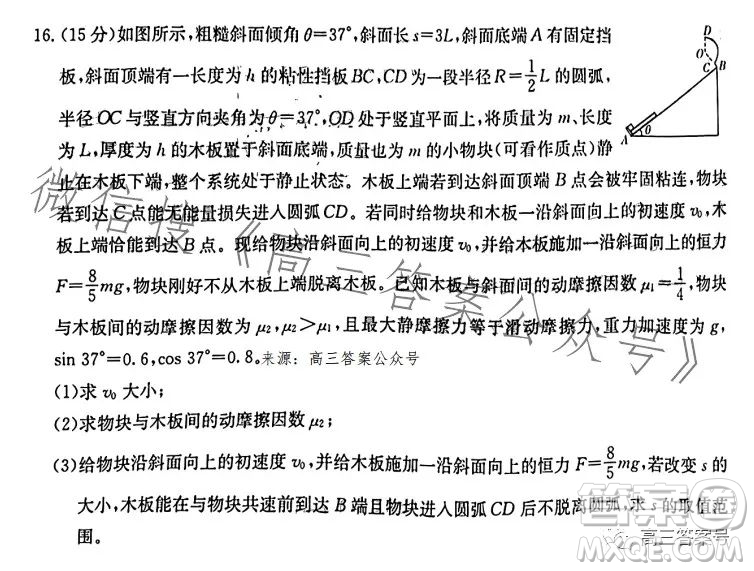 16.(15分)如图所示,粗糙斜面倾角θ=37°,斜面长s=3L,斜面底端A有固定挡
板,斜面顶端有一长度为h的粘性挡板BC,CD为一段半径R=1/2L的圆弧,
半径OC与竖直方向夹角为θ=37°,OD处于竖直平面上,将质量为m、长度
为L,厚度为h的木板置于斜面底端,质量也为m的小物块(可看作质点)静
止在木板下端,整个系统处于静止状态。木板上端若到达斜面顶端B点会被牢固粘连,物块
若到达C点能无能量损失进入圆弧CD。若同时给物块和木板一沿斜面向上的初速度v₀,木
板上端恰能到达B点。现给物块沿斜面向上的初速度v₀,并给木板施加一沿斜面向上的恒力
F=8/5mg,物块刚好不从木板上端脱离木板。已知木板与斜面间的动摩擦因数μ₁=1/4,物块
与木板间的动摩擦因数为μ₂,μ₂>μ₁,且最大静摩擦力等于滑动摩擦力,重力加速度为g,
sin 37°=0.6,cos 37°=0.8。来源:高三答案公众号
(1)求v₀大小;
(2)求物块与木板间的动摩擦因数μ₂;
(3)给物块沿斜面向上的初速度v₀,并给木板施加一沿斜面向上的恒力F=8/5mg,若改变s的
大小,木板能在与物块共速前到达B端且物块进入圆弧CD后不脱离圆弧,求s的取值范
围。
D
O
C
B
A
θ
微信搜《高三答案公众号》
答案圈
MXQE.COM
高三答案号